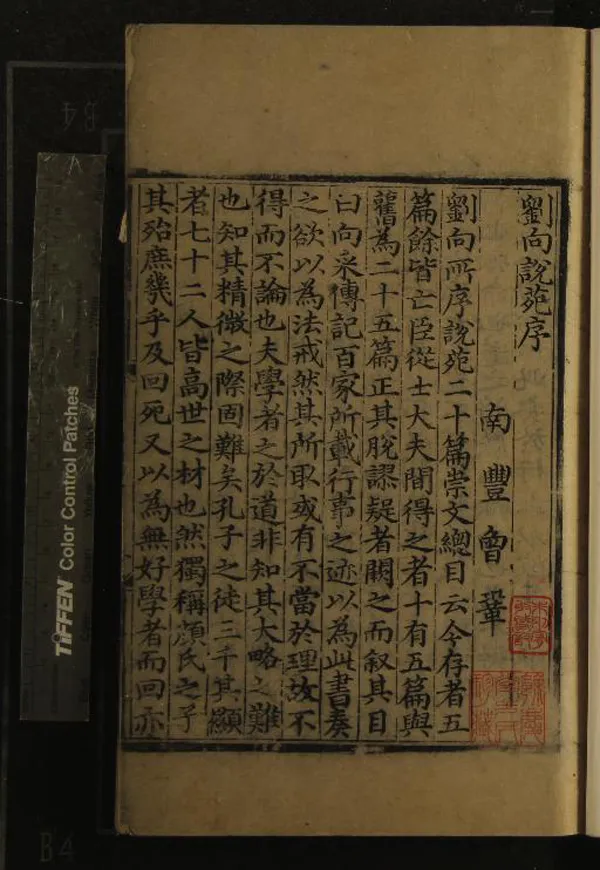 劉向說苑序
南豐曾鞏
劉向所序說苑二十篇崇文總目云今存者五
篇餘皆亡臣從士大夫間得之者十有五篇與
舊為二十五篇正其脫謬疑者闕之而叙其目
曰向采傳記百家所載行事之迹以為此書奏
之欲以為法戒然其所取或有不當於理故不
得而不論也夫學者之於道非知其大略之難
也知其精微之際固難矣孔子之徒三千其顯
者七十二人皆高世之材也然獨稱顏氏之子
其殆庶幾乎及回死又以為無好學者而回亦
TIFFEN Color Control Patches
B4
B4